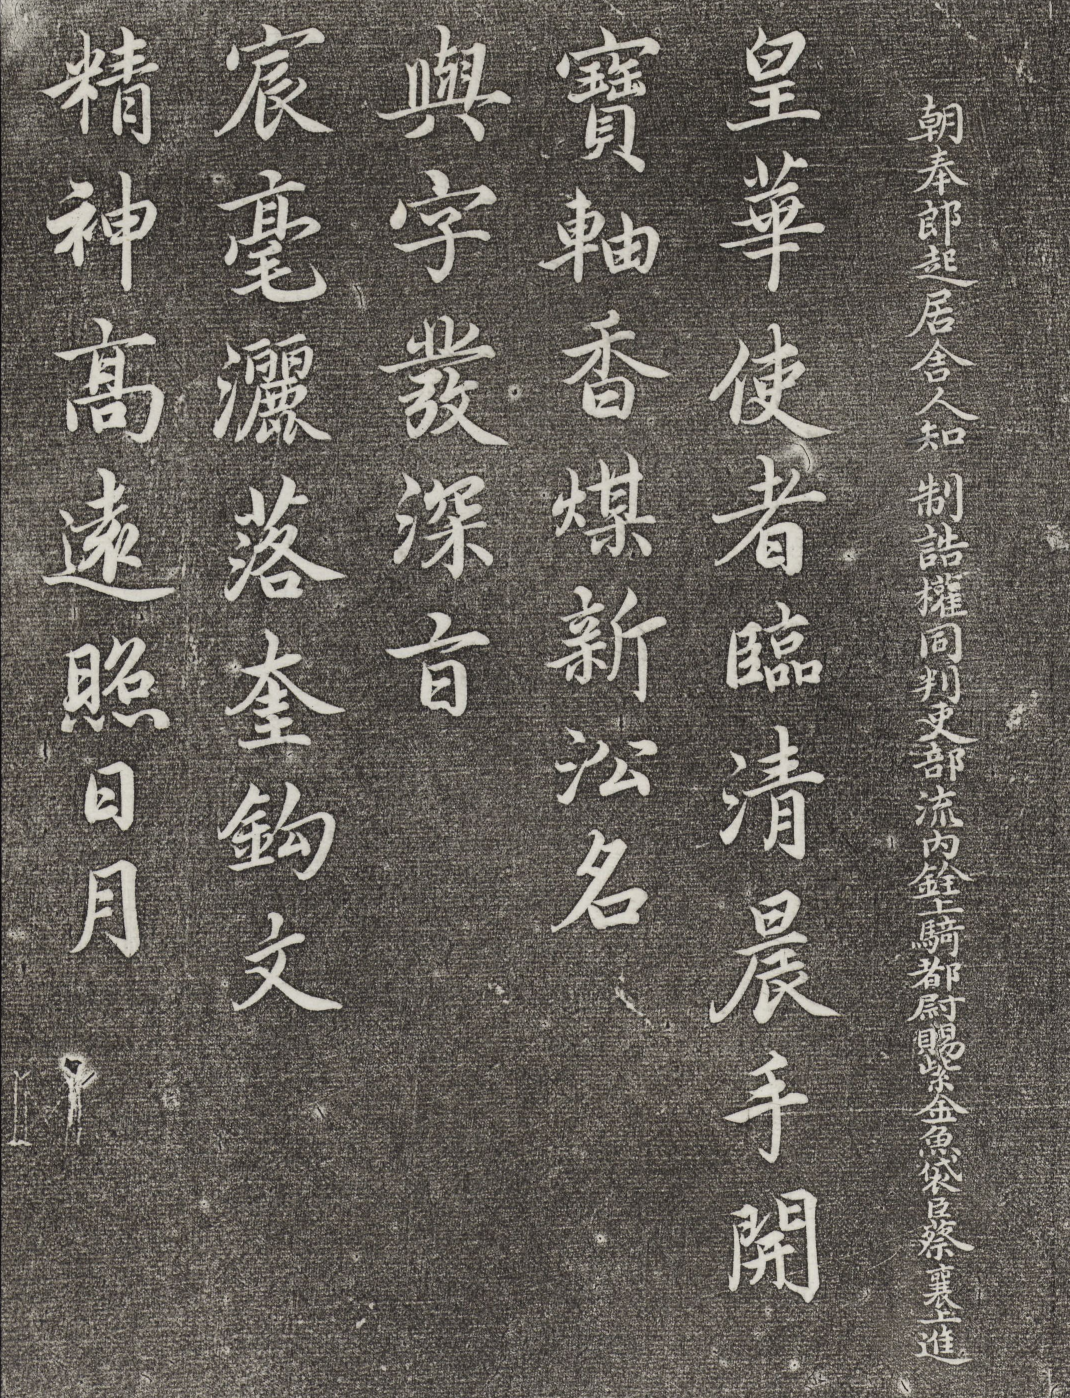 朝奉郎起居舍人知 制誥權同判吏部流內銓上騎都尉賜紫金魚袋臣蔡襄上進
皇華使者臨清晨手開
寶軸香煤新沁名
與字發深旨
宸毫灑落奎鈎文
精神高遠照日月